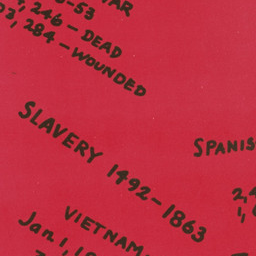 –53
,246 – DEAD
3,284 – WOUNDED
SLAVERY 1492–1863
SPANIS
VIETNAM
Jan 1, 1